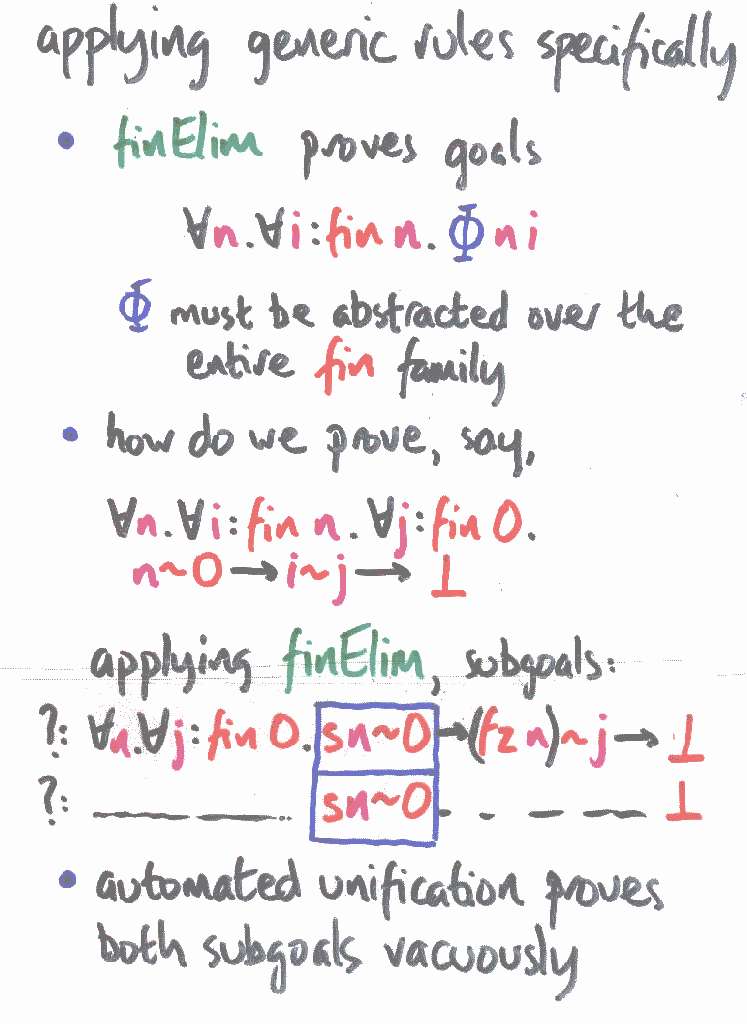 applying generic rules specifically
• finElim proves goals
∀n.∀i:fin n. Φ n i
Φ must be abstracted over the
entire fin family
• how do we prove, say,
∀n.∀i:fin n. ∀j:fin 0.
n~0→i~j→ ⊥
applying finElim, subgoals:
?: ∀n.∀j:fin 0. sn~0→(fz n)~j→ ⊥
?: sn~0 ⊥
• automated unification proves
both subgoals vacuously